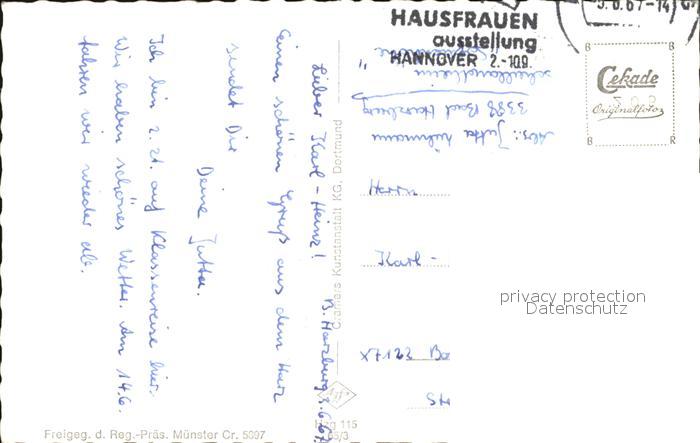 B. Harzburg, 3.6.67
Lieber Karl-Heinz!
Einen schönen Gruß aus dem Harz
sendet Dir
Deine Jutta.
Ich bin z. Zt. auf Klassenreise hier.
Wir haben schönes Wetter. Am 14.6.
fahren wir wieder ab.
HAUSFRAUEN
ausstellung
HANNOVER 2.-10.9.
5.6.67-14
Abs.: Jutta
3388 Bad Harzburg
Cekade
Originalfoto
B B
B R
Herrn
Karl-
X7123 Ba
Cramers Kunstanstalt KG, Dortmund
privacy protection
Datenschutz
Hzg 115
65/3
Freigeg. d. Reg.-Präs. Münster Cr. 5097